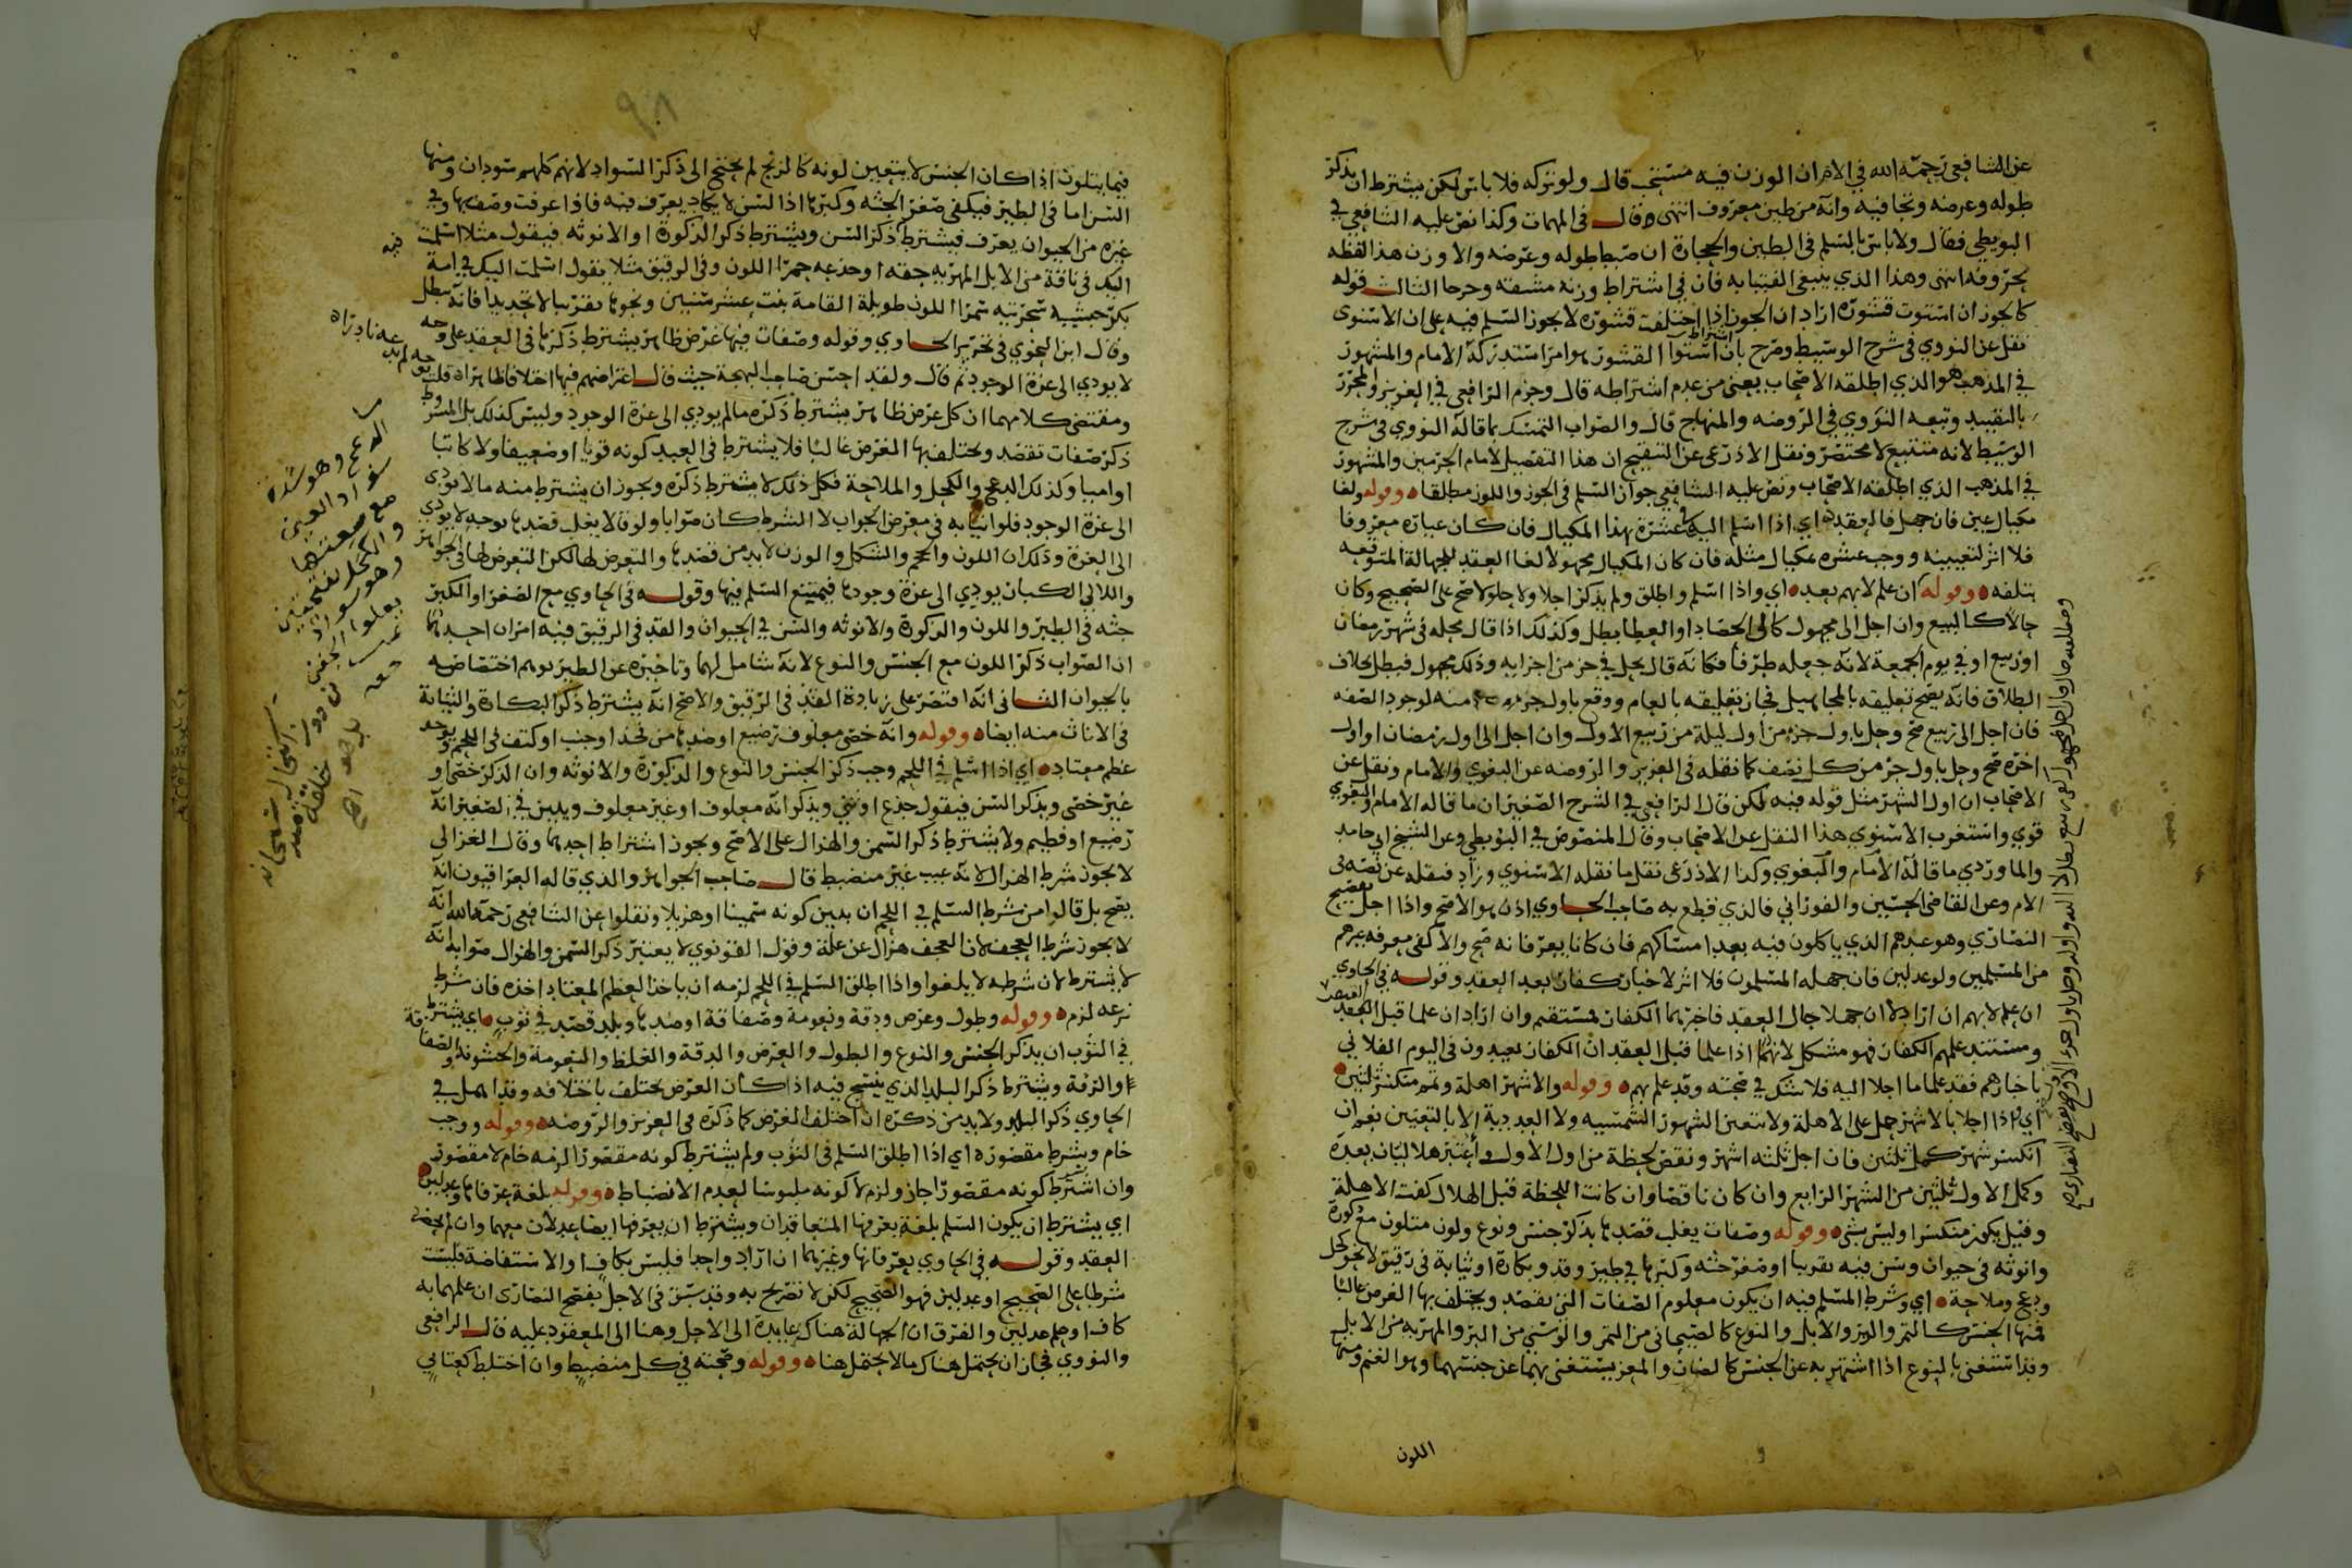 عن الشافعي رحمه الله في الام ان الوزن فيه مستحب قال ولو تركه فلا باس لكن يشترط ان يذكر
طوله وعرضه ونخافيه وانه من طين معروف انتهى وقال في المهمات وكذا نص عليه الشافعي في
البويطي فقال ولا باس بالسلم في الطين والحجارة ان ضبط طوله وعرضه والا وزن هذا لفظه
بحروفه انتهى وهذا الذي ينبغي الفتيا به فان في اشتراط وزنه مشقة وحرجا الثالث قوله
كالجوز ان استوت قشوره اراد ان الجوز اذا اختلفت قشوره لا يجوز السلم فيه على ان الاسنوي
نقل عن النووي في شرح الوسيط وصرح بان اشتراط استوا القشور هو امر استدركه الامام والمشهور
في المذهب هو الذي اطلقه الاصحاب يعني من عدم اشتراطه قال وجزم الرافعي في العزيز والمحرر
بالتقييد وتبعه النووي في الروضه والمنهاج قال والصواب التمسك بما قاله النووي في شرح
الوسيط لانه متتبع لا مختصر ونقل الاذرعي عن التنقيح ان هذا التفصيل لامام الحرمين والمشهور
في المذهب الذي اطلقه الاصحاب ونص عليه الشافعي جواز السلم في الجوز واللوز مطلقا وقوله ولغا
مكيال عين فان جهل فالعقد اي اذا اسلم اليه في عشرة بهذا المكيال فان كان عياره معروفا
فلا اثر لتعيينه ووجب عشره بمكيال مثله فان كان المكيال مجهولا لغا العقد للجهالة المتوقعه
بتلفه وقوله ان علم لا بهم بعد اي واذا اسلم واطلق ولم يذكر اجلا ولا حلولا صح على الصحيح وكان
حالا كالبيع وان اجل الى مجهول كالى الحصاد او العطا بطل وكذلك اذا قال محله في شهر رمضان
او ربيع او في يوم الجمعة لانه جعله ظرفا فكانه قال يحل في جز من اجزايه وذلك مجهول فيبطل بخلاف
الطلاق فانه يصح تعليقه بالمجاهيل فجاز تعليقه بالعام ووقع باول جزء منه لوجود الصفه
فان اجل الى ربيع صح وحل باول جزء من اول ليلة من ربيع الاول وان اجل الى اول رمضان او اول
اخره صح وحل باول جز من كل نصف كما نقله في العزيز والروضه عن البغوي والامام ونقل عن
الاصحاب ان اول الشهر مثل قوله فيه لكن قال الرافعي في الشرح الصغير ان ما قاله الامام والبغوي
قوي واستغرب الاسنوي هذا النقل عن الاصحاب وقال المنصوص في البويطي وعن الشيخ ابي حامد
والماوردي ما قاله الامام والبغوي وكذا الاذرعي نقل ما نقله الاسنوي وزاد فنقله عن نصه في
الام وعن القاضي الحسين والفوراني فالذي قطع به صاحب الحاوي اذن هو الاصح واذا اجل بفصح
النصارى وهو عيدهم الذي ياكلون فيه بعد امساكهم فان كانا يعرفانه صح والا كفى معرفه غيرهم
من المسلمين ولو عدلين فان جهله المسلمون فلا اثر لاخبار كفار بعد العقد وقوله في الحاوي
ان علم لا بهم ان اراد لا ان جهلا حال العقد فاخبرهما الكفار فمستقيم وان اراد ان علما قبل العقد
ومستند علمهم الكفار فهو مشكل لانهما اذا علما قبل العقد ان الكفار يعيدون في اليوم الفلاني
باخبارهم فقد علما ما اجلا اليه فلا شك في صحته وقد علم بهم وقوله والاشهر اهلة وتمم منكسر ثلثين
اي واذا اجلا بالاشهر حمل على الاهلة ولا تتعين الشهور الشمسيه ولا العددية الا بالتعيين نعم ان
انكسر شهر كمل ثلثين فان اجل ثلثه اشهر ونقص لحظة من اول الاول اعتبر هلالان بعده
وكمل الاول ثلثين من الشهر الرابع وان كان ناقصا وان كانت اللحظة قبل الهلال كفت الاهلة
وقيل يكون منكسرا وليس بشي وقوله وصفات يغلب قصدها بذكر جنس ونوع ولون متلون مع ذكورة
وانوثه في حيوان وسن فيه تقريبا او صغر جثه وكبرها في طير وقد وبكارة او ثيابة في رقيق لا نحو كحل
ودعج وملاحة اي وشرط المسلم فيه ان يكون معلوم الصفات التي تقصد ويختلف بها الغرض غالبا
فمنها الجنس كالتمر والبز والابل والنوع كالصيحاني من التمر والوشي من البز والمهريه من الابل
وقد استغني بالنوع اذا اشتهر به عن الجنس كالضان والمعز يستغنى بهما عن جنسهما وهو الغنم ومنها
اللون
فيما يتلون اذا كان الجنس لا يتعين لونه كالزنج لم يحتج الى ذكر السواد لانهم كلهم سودان ومنها
السن اما في الطير فيكفي صغر الجثه وكبرها اذ السن لا يكاد يعرف فيه فاذا عرفت وصف بها وفي
غيره من الحيوان يعرف فيشترط ذكر السن ويشترط ذكر الذكورة او الانوثه فيقول مثلا اسلمت
اليك في ناقة من الابل المهريه حقه او جذعه حمرا اللون وفي الرقيق مثلا يقول اسلمت اليك في امة
بكر حبشيه سحرتيه سمرا اللون طويلة القامة بنت عشر سنين ونحوها تقريبا لا تحديدا فانه يبطل
وقال ابن النحوي في تحرير الحاوي وقوله وصفات فيها غرض ظاهر يشترط ذكرها في العقد على وجه
لا يودي الى عزة الوجود ثم قال ولقد احسن صاحب البهجة حيث قال اغراضهم فيها اختلافا ظاهرا قلت
ومقتضى كلامهما ان كل غرض ظاهر يشترط ذكره ما لم يودي الى عزة الوجود وليس كذلك بل الشرط
ذكر صفات تقصد ويختلف بها الغرض غالبا فلا يشترط في العبد كونه قويا او ضعيفا ولا كاتبا
او اميا وكذلك الدعج والكحل والملاحة فكل ذلك لا يشترط ذكره ويجوز ان يشترط منه ما لا يودي
الى عزة الوجود فلو اتيا به في معرض الجواب لا الشرط كان صوابا ولو قالا يغلب قصدها بوجه لا يودي
الى العزة وذلك ان اللون والحجم والشكل والوزن لا بد من قصدها والتعرض لها لكن التعرض لها في الجواهر
واللالي الكبار يودي الى عزة وجودها فيمتنع السلم فيها وقوله في الحاوي مع الصغر او الكبر
جثه في الطير واللون والذكورة والانوثه والسن في الحيوان والقد في الرقيق فيه امران احدهما
ان الصواب ذكر اللون مع الجنس والنوع لانه شامل لهما وتاخيره عن الطير يوهم اختصاصه
بالحيوان الثاني انه اقتصر على زيادة القد في الرقيق والاصح انه يشترط ذكر البكارة والثيابة
في الاناث منه ايضا وقوله وانه خصي معلوف رضيع او ضدها من فخذ او جنب او كتف في اللحم
عظم معتاد اي اذا اسلم في اللحم وجب ذكر الجنس والنوع والذكورة والانوثه وان الذكر خصي او
غير خصي ويذكر السن فيقول جذع او ثني ويذكر انه معلوف او غير معلوف ويبين في الصغير انه
رضيع او فطيم ولا يشترط ذكر السمن والهزال على الاصح ويجوز اشتراط احدهما وقال الغزالي
لا يجوز شرط الهزال لانه عيب غير منضبط قال صاحب الجواهر والذي قاله العراقيون انه
يصح بل قالوا من شرط السلم في اللحم ان يبين كونه سمينا او هزيلا ونقلوا عن الشافعي رحمه الله انه
لا يجوز شرط العجف لان العجف هزال عن علة وقول القونوي لا يعتبر ذكر السمن والهزال صوابه انه
لا يشترط لان شرطه لا يلغوا واذا اطلق السلم في اللحم لزمه ان ياخذ العظم المعتاد اخذه فان شرط
نزعه لزم وقوله وطول وعرض ودقة ونعومة وصفاقة او ضدها وبلد قصد في ثوب اي يشترط
في الثوب ان يذكر الجنس والنوع والطول والعرض والدقة والغلظ والنعومة والخشونة والصفاقة
او الرقة ويشترط ذكر البلد الذي ينسج فيه اذا كان الغرض يختلف باختلافه وقد اهمل في
الحاوي ذكر البلد ولا بد من ذكره ان اختلف الغرض كما ذكره في العزيز والروضه وقوله ووجب
خام وبشرط مقصوره اي اذا اطلق السلم في الثوب ولم يشترط كونه مقصورا لزمه خام لا مقصور
وان اشترط كونه مقصورا جاز ولزم لا كونه ملبوسا لعدم الانضباط وقوله بلغة عرفاها وعدلين
اي يشترط ان يكون السلم بلغة يعرفها المتعاقدان ويشترط ان يعرفها ايضا عدلان معهما وان لم يحضرا
العقد وقوله في الحاوي يعرفانها وغيرهما ان اراد واحدا فليس بكاف او الاستفاضة فليست
شرطا على الصحيح او عدلين فهو الصحيح لكن لا تصريح به وقد سبق في الاجل بفصح النصارى ان علمهما به
كاف او علم عدلين والفرق ان الجهالة هناك عايدة الى الاجل وهنا الى المعقود عليه قال الرافعي
والنووي فجاز ان يحتمل هناك ما لا يحتمل هنا وقوله وصحته في كل منضبط وان اختلط كعتابي
الدعج وهو شدة
سواد العين
مع سعتها
والكحل بفتحتين
وهو سواد
يعلوا الجفن